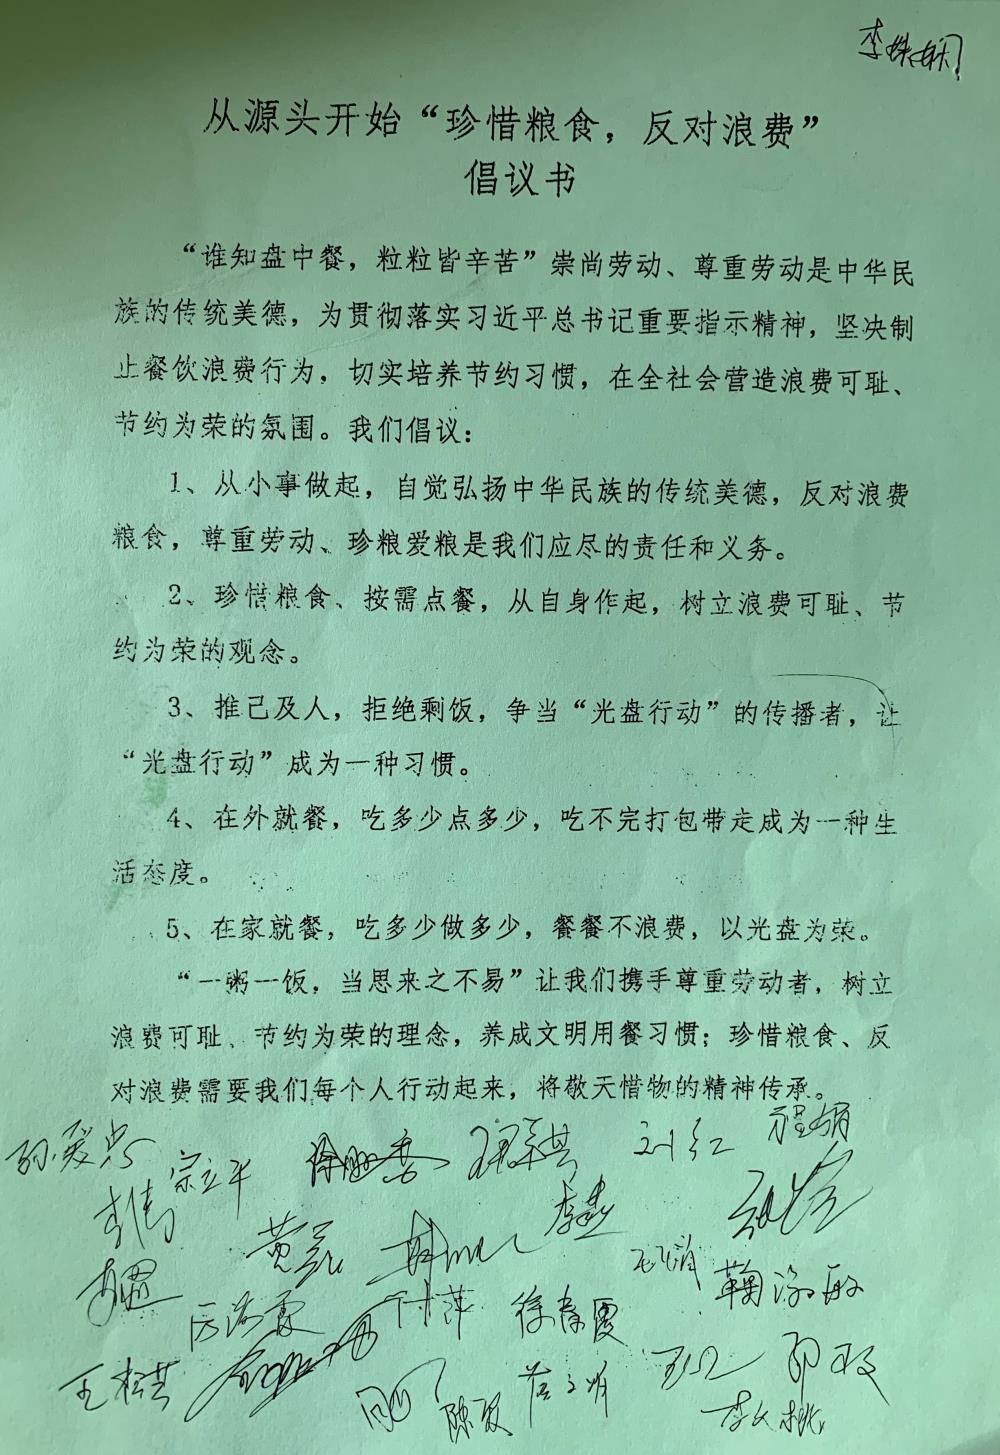 从源头开始“珍惜粮食，反对浪费”
倡议书
“谁知盘中餐，粒粒皆辛苦”崇尚劳动、尊重劳动是中华民
族的传统美德，为贯彻落实习近平总书记重要指示精神，坚决制
止餐饮浪费行为，切实培养节约习惯，在全社会营造浪费可耻、
节约为荣的氛围。我们倡议：
1、从小事做起，自觉弘扬中华民族的传统美德，反对浪费
粮食，尊重劳动、珍粮爱粮是我们应尽的责任和义务。
2、珍惜粮食、按需点餐，从自身作起，树立浪费可耻、节
约为荣的观念。
3、推己及人，拒绝剩饭，争当“光盘行动”的传播者，让
“光盘行动”成为一种习惯。
4、在外就餐，吃多少点多少，吃不完打包带走成为一种生
活态度。
5、在家就餐，吃多少做多少，餐餐不浪费，以光盘为荣。
“一粥一饭，当思来之不易”让我们携手尊重劳动者，树立
浪费可耻、节约为荣的理念，养成文明用餐习惯；珍惜粮食、反
对浪费需要我们每个人行动起来，将敬天惜物的精神传承。
刘红
宗立平
付萍
徐春霞